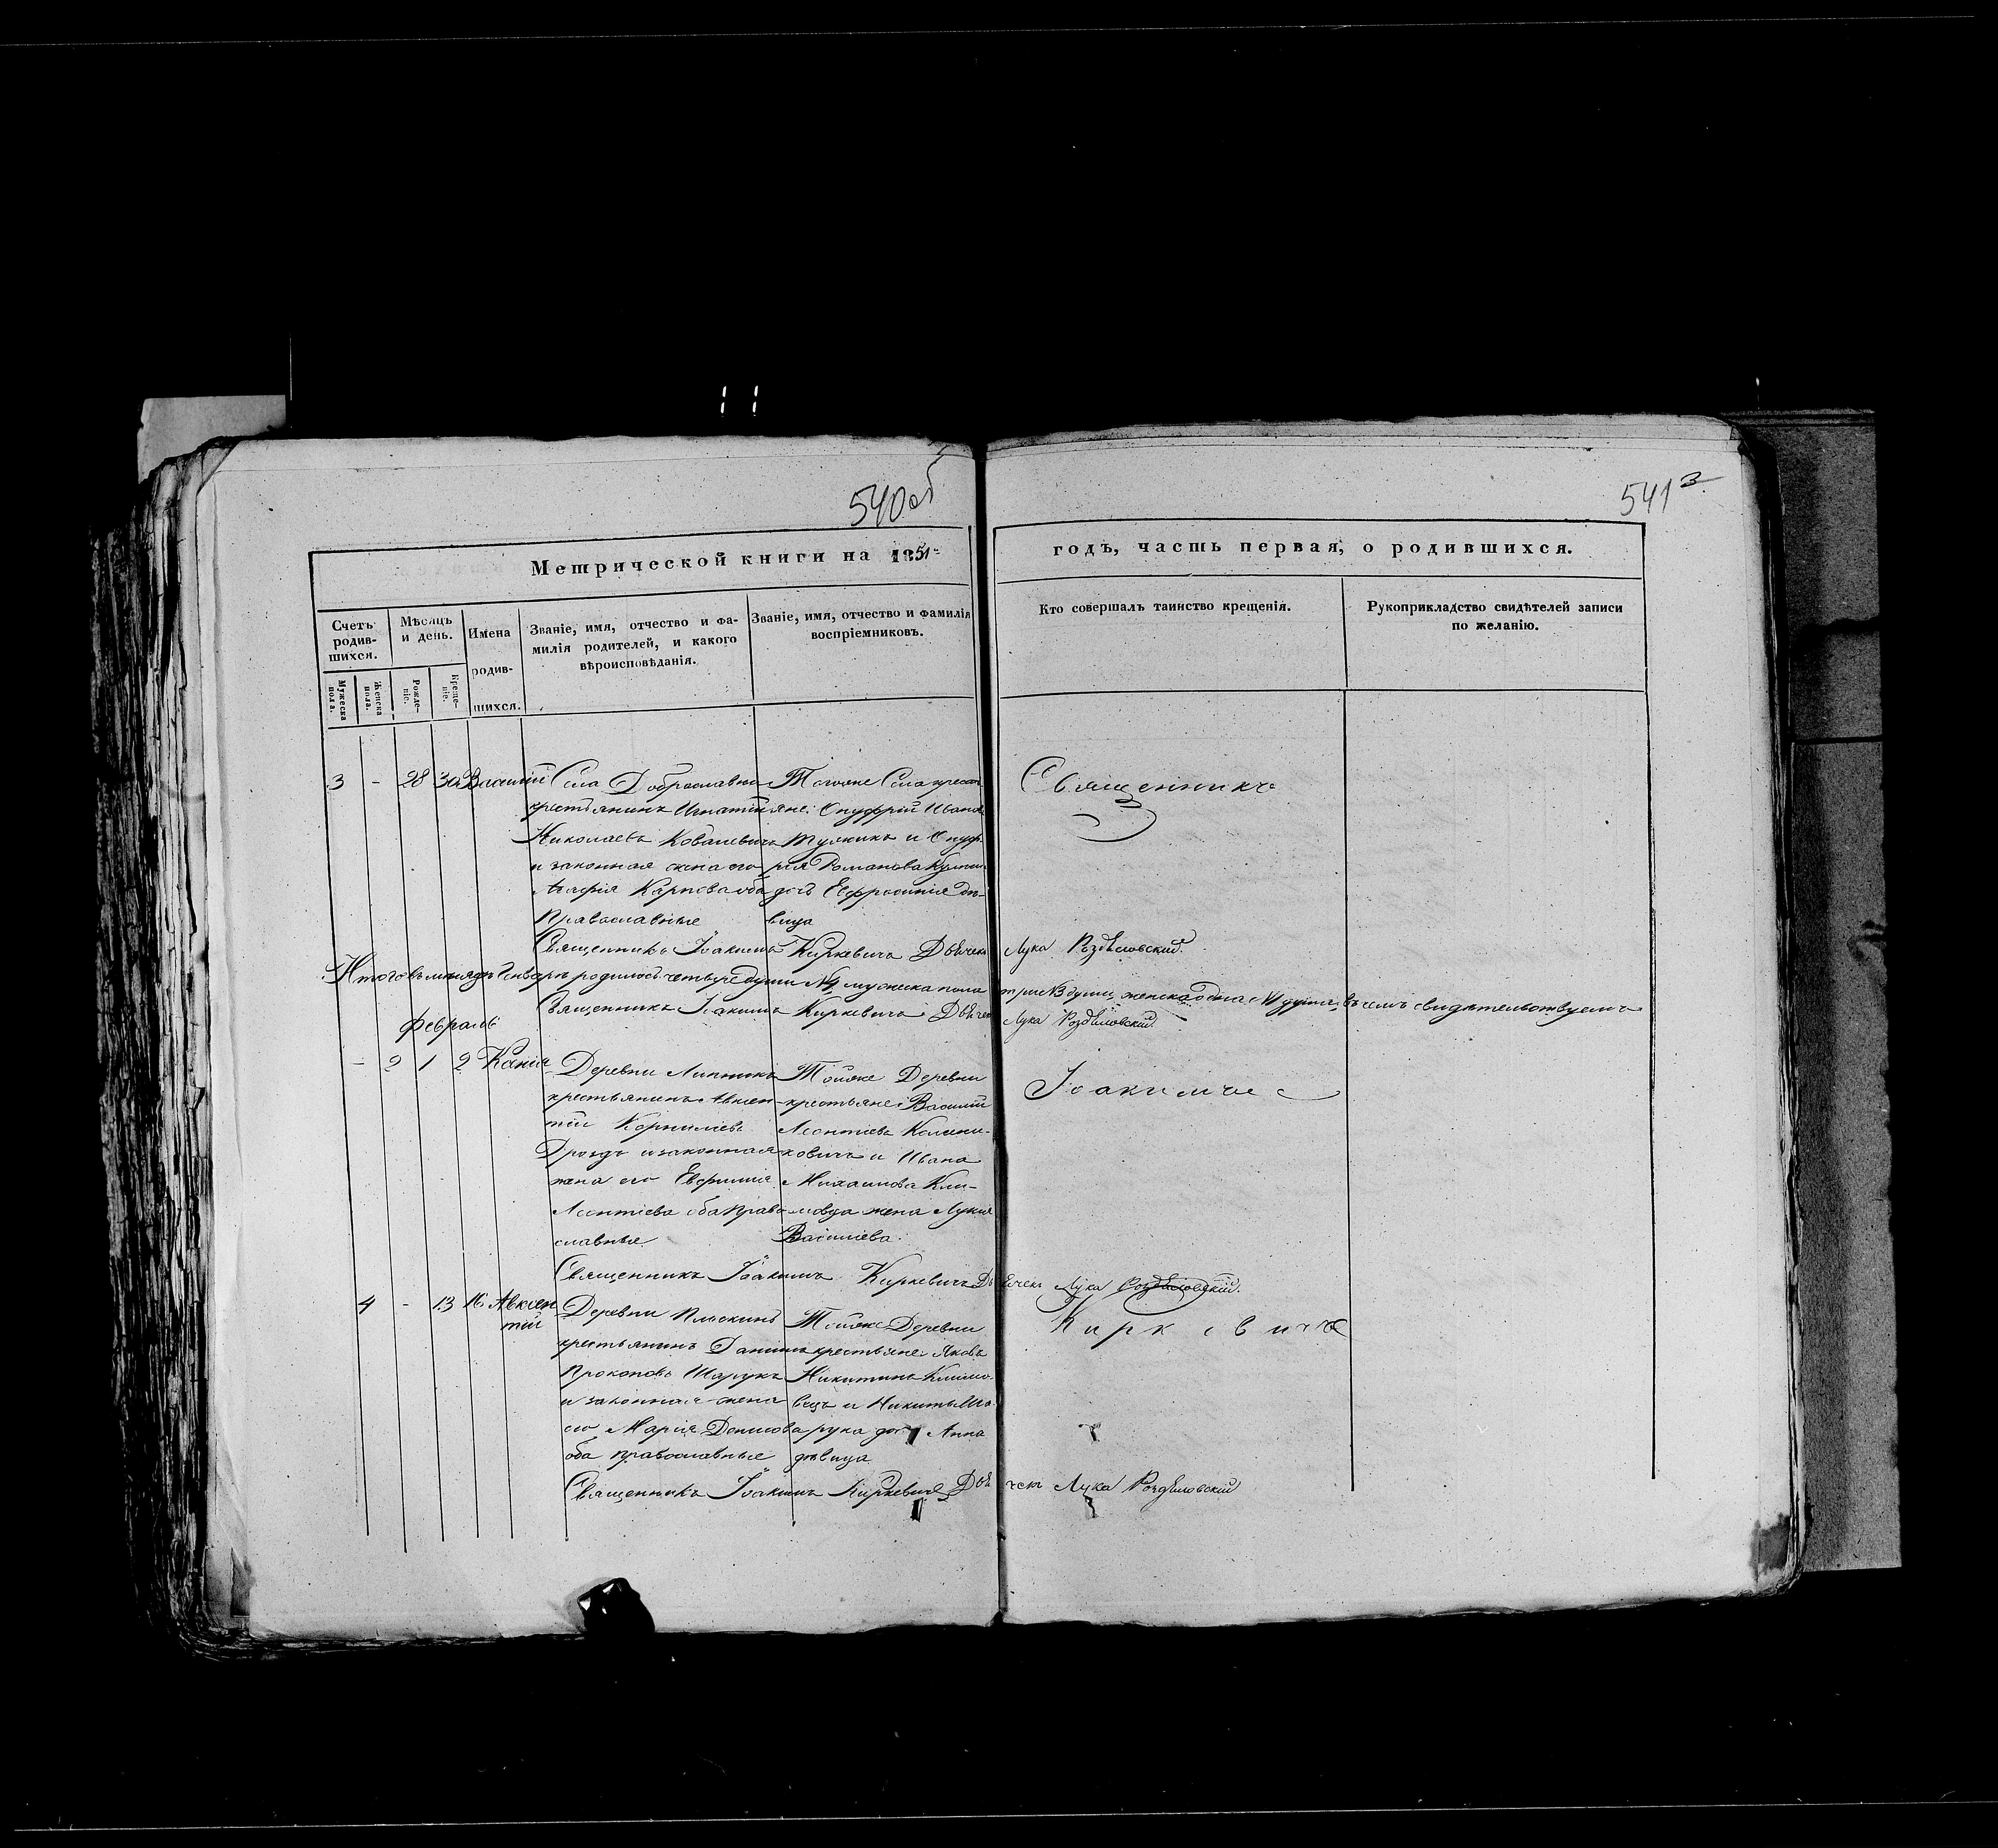 540об
541 3
Метрической книги на 1851
годъ, часть первая, о родившихся.
Счетъ родив-шихся.
Мѣсяцъ и день.
Имена родив-шихся.
Званіе, имя, отчество и фа-
милія родителей, и какого
вѣроисповѣданія.
Званіе, имя, отчество и фамилія
воспріемниковъ.
Кто совершалъ таинство крещенія.
Рукоприкладство свидѣтелей записи
по желанію.
Мужеска пола.
Женска пола.
Рожде-ніе.
Креще-ніе.
3 - 28 30 Василій
Села Доброславки
крестьянинъ Игнатій
Николаевъ Ковалевичъ
и законная жена его
Агафія Карпова оба
Православные
Тогоже Села крестья
яне: Онуфрій Иванов
и Онуф
рія Романова
дочь Евфросинія дѣ-
вица
Священникъ
Священникъ Іоакимъ Киркевичъ Дьячекъ Лука Роздѣловскій.
Итого въ мѣсяцѣ Генварѣ родилось четыре души №4 мужеска пола три №3 души, женска одна №1 душа, въ чемъ свидѣтельствуемъ
Священникъ Іоакимъ Киркевичъ Дьячекъ Лука Роздѣловскій.
Февраль
- 2 1 2 Ксенія
Деревни Липники
крестьянинъ Авксен-
тій Корниліевъ
Дроздъ и законная
жена его Евфимія
Леонтіева оба Право
славные
Тойже Деревни
крестьяне: Василій
Леонтіевъ Калени-
ковичъ и Ивана
Михаилова Кли-
мовца жена Лукія
Василіева.
Іоакимъ
Священникъ Іоакимъ Киркевичъ Дьячекъ Лука Роздѣловскій.
4 - 13 16 Авксен
тій
Деревни Пласкинь
крестьянинъ Даніилъ
Прокоповъ Шарукъ
и законная жена
его Марія Денисова
оба православные
Тойже Деревни
крестьяне: Яковъ
Никитинъ Климо-
вецъ и Никиты Ша-
рука дочь Анна
дѣвица
Киркевичъ
Священникъ Іоакимъ Киркевичъ Дьячекъ Лука Роздѣловскій